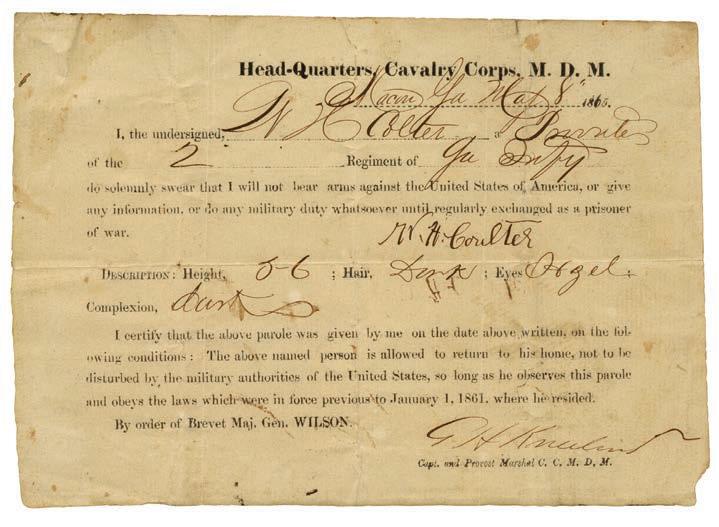 Head-Quarters, Cavalry Corps, M. D. M.
Macon Ga May 8" 1865.
I, the undersigned, W H Colter Private
of the 2 Regiment of Ga Infty
do solemnly swear that I will not bear arms against the United States of America, or give
any information, or do any military duty whatsoever until regularly exchanged as a prisoner
of war.
W. H. Coulter
DESCRIPTION: Height, 5-6 ; Hair, Dark ; Eyes Hazel.
Complexion, dark
I certify that the above parole was given by me on the date above written, on the fol-
lowing conditions: The above named person is allowed to return to his home, not to be
disturbed by the military authorities of the United States, so long as he observes this parole
and obeys the laws which were in force previous to January 1, 1861, where he resided.
By order of Brevet Maj. Gen. WILSON.
G H Kneeland
Capt. and Provost Marshal C. C. M. D. M.